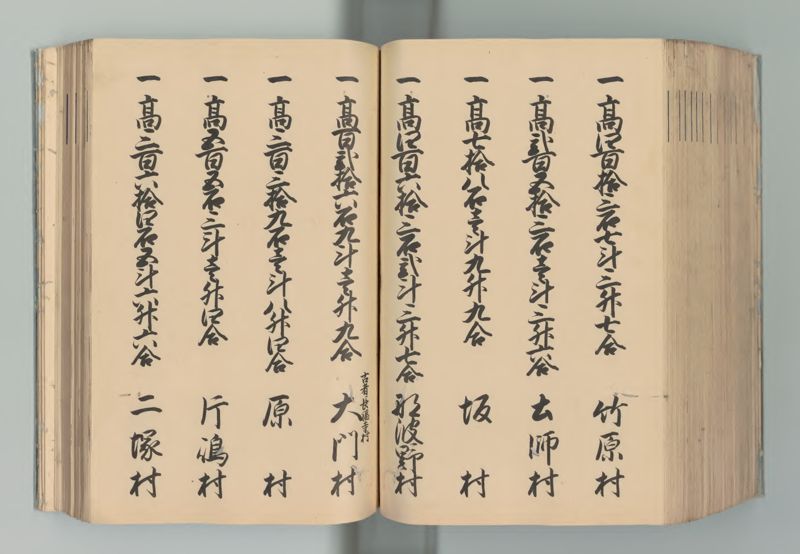 一 高四百拾三石七斗三升七合 竹原村
一 高弐百五拾三石壱斗三升六合 土師村
一 高七拾八石壱斗九升九合 坂村
一 高四百六拾三石弐斗三升七合 那波野村
一 高百弐拾六石九斗壱升九合 大門村
古者長福寺村
一 高三百三拾九石壱斗八升四合 原村
一 高五百五石三斗壱升四合 片嶋村
一 高三百六拾四石五斗六升六合 二塚村